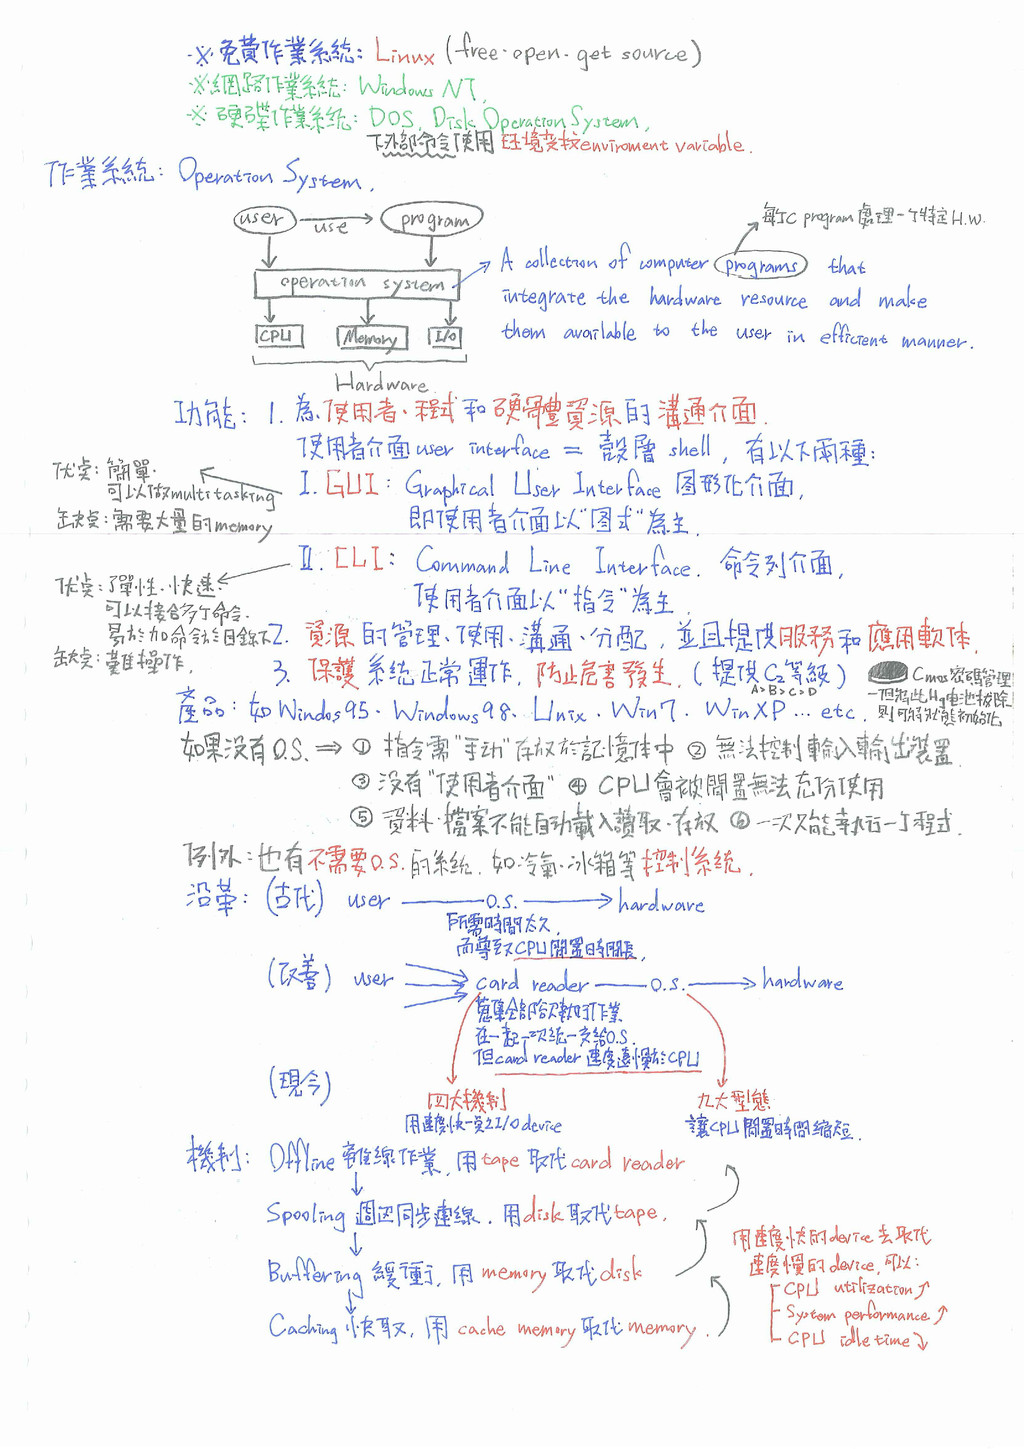 ※免費作業系統: Linux (free.open.get source)
※網路作業系統: Windows NT,
※硬碟作業系統: DOS, Disk Operation System,
下外部命令使用 环境变数enviroment variable.
作業系統: Operation System,
user use program
每个C program處理一个特定H.W.
operation system
CPU Memory I/O
Hardware
A collection of computer programs that
integrate the hardware resource and make
them available to the user in efficient manner.
功能: 1. 為使用者、程式和硬體資源的溝通介面.
使用者介面user interface = 殼層 shell, 有以下兩種:
I. GUI: Graphical User Interface 圖形化介面,
即使用者介面以"图式"為主.
优点: 簡單.
可以做multitasking
缺点: 需要大量的memory
II. CLI: Command Line Interface. 命令列介面,
使用者介面以"指令"為主.
优点: 彈性.快速.
可以接合多个命令.
易於加命令於目錄下
缺点: 難操作.
2. 資源的管理、使用、溝通、分配, 並且提供服務和應用軟体.
3. 保護系統正常運作, 防止危害發生. (提供C₂等級)
A>B>C>D
Cmos密碼管理
一但將此Hg电池拔除
則可將狀態初始化
產品: 如Windos95、Windows98、Unix、Win7、WinXP…etc.
如果沒有O.S. ⇒ ① 指令需"手动"存放於記憶体中 ② 無法控制輸入輸出裝置
③ 沒有"使用者介面" ④ CPU會被閒置無法充份使用
⑤ 資料、檔案不能自动載入讀取、存放 ⑥ 一次只能執行一个程式.
例外: 也有不需要O.S.的系統. 如冷氣.冰箱等控制系統.
沿革: (古代) user O.S. hardware
所需時間太久,
而導致CPU閒置時間長,
(改善) user card reader O.S. hardware
蒐集全部欲執行作業
在一起一次統一交給O.S.
但card reader 速度遠慢於CPU
(現今)
四大機制
用速度快一点之I/O device
九大型態
讓CPU閒置時間縮短.
機制: Offline 離線作業, 用tape 取代card reader
Spooling 週边同步連線, 用disk取代tape.
Buffering 緩衝, 用 memory取代disk
Caching 快取, 用 cache memory取代memory.
用速度快的device去取代
速度慢的device,可以:
CPU utilization↗
System performance↗
CPU idle time↘